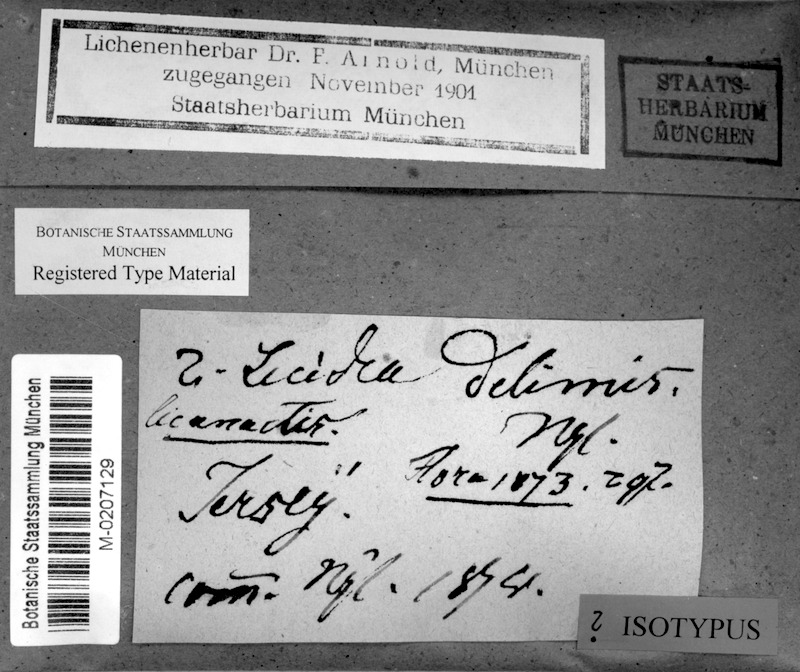 Lichenenherbar Dr. F. Arnold, München
zugegangen November 1901
Staatsherbarium München
STAATS-
HERBARIUM
MÜNCHEN
BOTANISCHE STAATSSAMMLUNG
MÜNCHEN
Registered Type Material
Botanische Staatssammlung München
M-0207129
Lecidea delimis.
Nyl.
Flora 1873.
Jersëy.
com. Nyl. 1874.
? ISOTYPUS